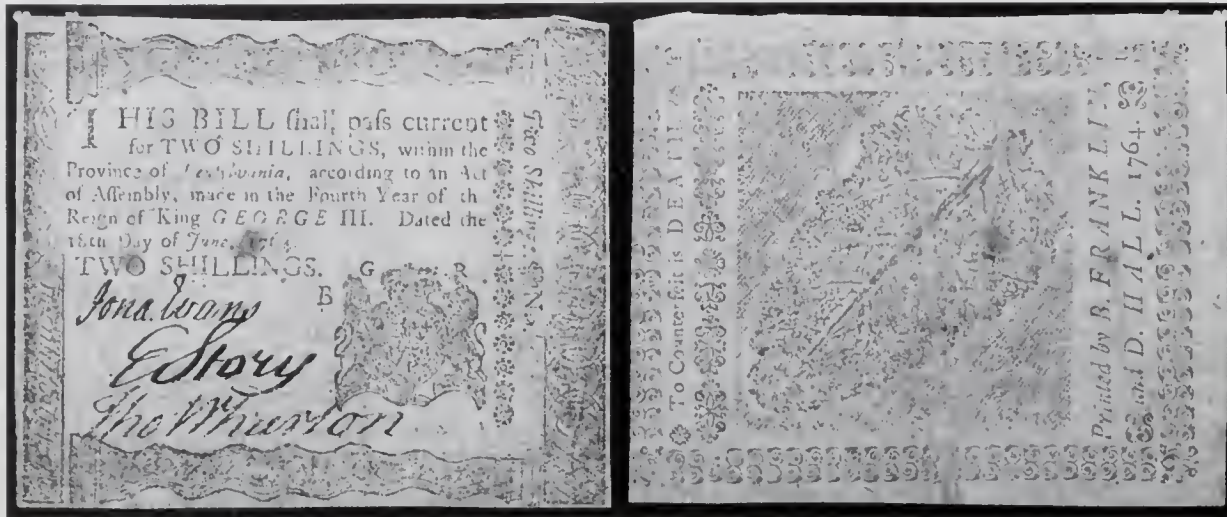 THIS BILL ſhall paſs current
for TWO SHILLINGS, within the
Province of Pennſylvania, according to an Act
of Aſſembly, made in the Fourth Year of the
Reign of King GEORGE III. Dated the
18th Day of June, 1764.
TWO SHILLINGS.
G R.
B
Jona. Evans
E Story
Tho Wharton
Two Shillings.
No
To Counterfeit is DEATH.
Printed by B. FRANKLIN,
and D. HALL. 1764.